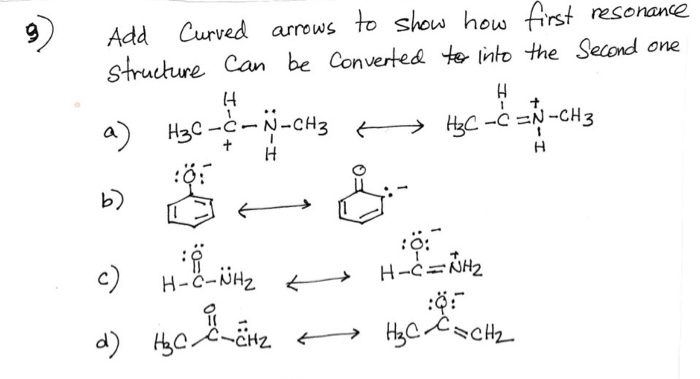 9) Add Curved arrows to show how first resonance
structure Can be Converted to into the Second one
a) H3C-C-N̈-CH3 ⟷ H3C-C=N-CH3
H + H H + H
b) :Ö:⁻ ⟷ O :⁻
c) :Ö H-C-N̈H2 ⟷ :Ö:⁻ H-C=N⁺H2
d) O H3C-C-C̈⁻H2 ⟷ :Ö:⁻ H3C-C=CH2